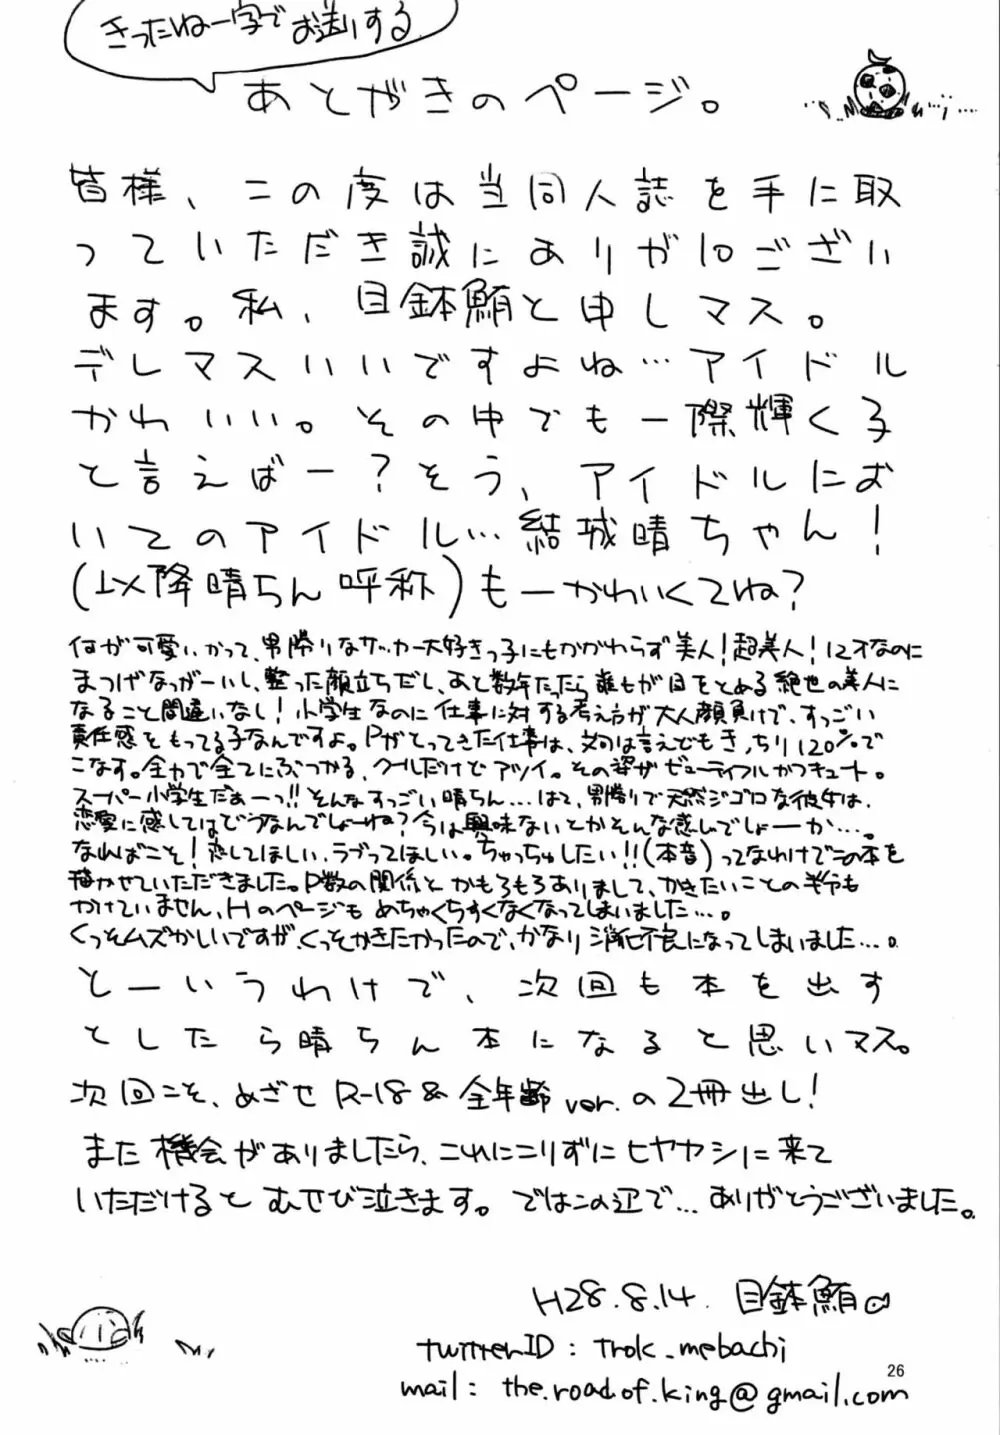 きったねー字でお送りする
あとがきのページ。
皆様、この度は当同人誌を手に取
っていただき誠にありがとうござい
ます。私、目鉢鮪と申しマス。
デレマスいいですよね…アイドル
かわいい。その中でも一際輝く子
と言えばー？そう、アイドルにお
いてのアイドル…結城晴ちゃん！
(以降晴ちん呼称)もーかわいくてね？
何が可愛いかって、男勝りなサッカー大好きっ子にもかかわらず美人！超美人！12才なのに
まつげなっがーいし、整った顔立ちだし、あと数年たったら誰もが目をとめる絶世の美人に
なること間違いなし！小学生なのに仕事に対する考え方が大人顔負けで、すっごい
責任感をもってる子なんですよ。Pがとってきた仕事は、文句は言えどもきっちり120%で
こなす。全力で全てにぶつかる、クールだけどアツイ。その姿がビューティフルかつキュート。
スーパー小学生だぁーっ!!そんなすっごい晴ちん…はて、男勝りで天然ジゴロな彼女は、
恋愛に感してはどうなんでしょーね？今は興味ないとかそんな感じでしょーか…。
なればこそ！恋してほしい、ラブってほしい。ちゃっちゅしたい!!(本音)ってなわけでこの本を
描かせていただきました。P数の関係とかもろもろありまして、かきたいことの半分も
かけていません、Hのページもめちゃくちゃすくなくなってしまいました…。
くっそムズかしいですが、くっそかきたかったので、かなり消化不良になってしまいました…。
とーいうわけで、次回も本を出す
としたら晴ちん本になると思いマス。
次回こそ、めざせR-18&全年齢ver.の2冊出し！
また機会がありましたら、これにこりずにヒヤカシに来て
いただけるとむせび泣きます。ではこの辺で…ありがとうございました。
H28.8.14. 目鉢鮪
twitterID : Trok_mebachi
mail : the.road.of.king@gmail.com
26